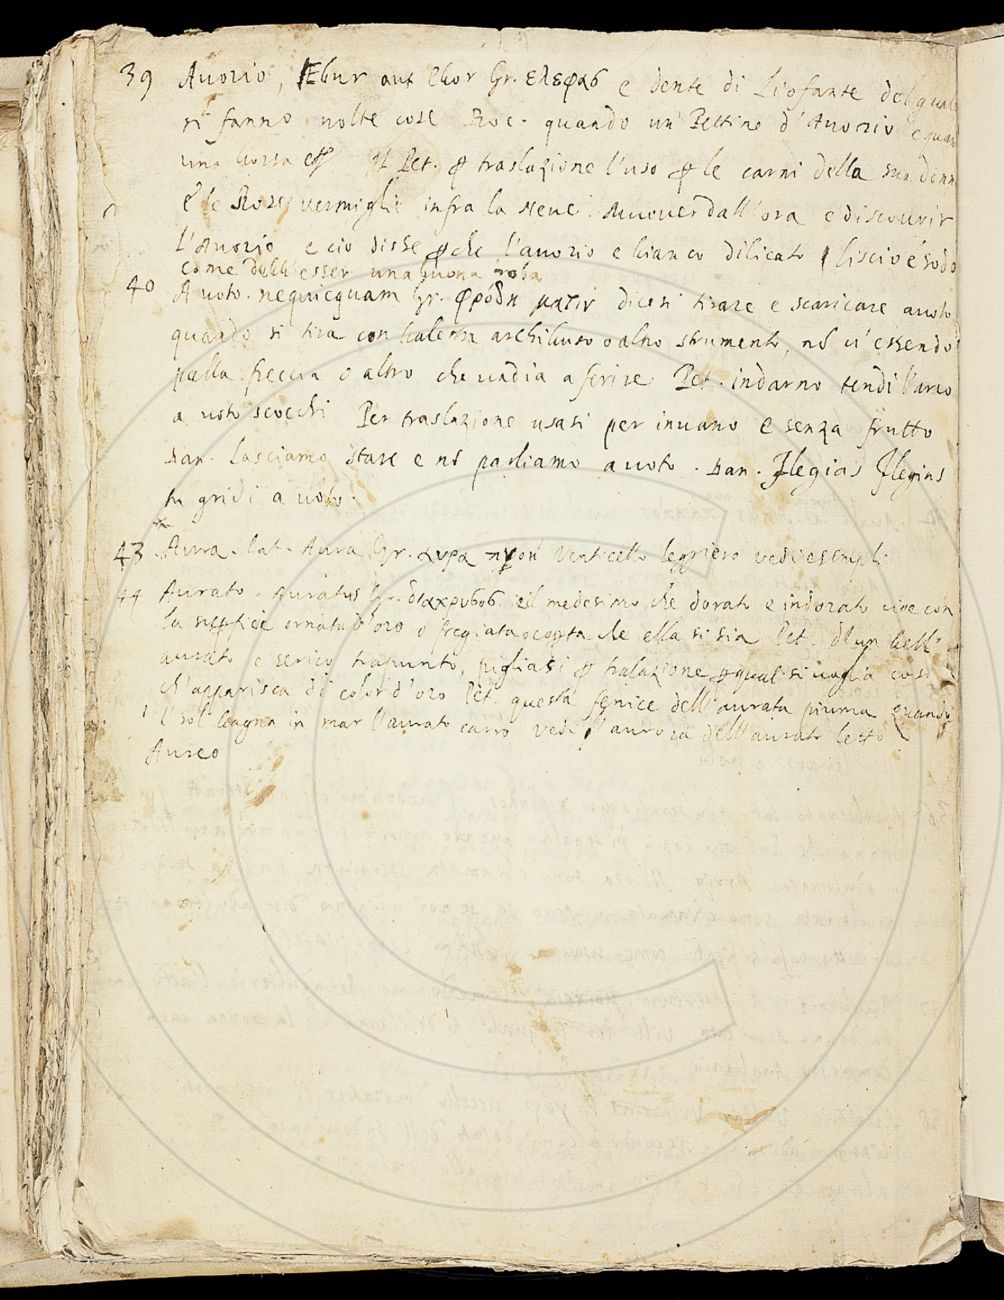 39 Auorio, Ebur aut Ebor Gr. ελεφας e dente di Liofante del qual
si fanno molte cose Boc. quando un Pettine d'Auorio e quan
una borsa Il Pet. traslazione l'uso le carni della sua donn
le Rose vermiglie infra la Neue. Muouer dall'ora e discourir
L'Auorio e cio disse che l'auorio e bianco dilicato liscio e sodo
come debb'esser una buona roba
40 A uoto. nequicquam Gr. ματιν dicesi tirare e scaricare auoto
quando si tira con balestra archibuso o altro strumento, no ui essendo
palla freccia o altro che uadia a ferire Pet. indarno tendi l'arco
a uoto scocchi Per traslazione usasi per inuano e senza frutto
Dan. lasciamo stare e no parliamo auoto. Dan. Flegias Flegias
tu gridi a uoto.
43. Aura. Lat. Aura Gr. αυρα Venticello leggiero uedi essempli
44 Aurato. Auratus Gr. διαχρυσος. è il medesimo che dorato e indorato cioe con
la suffice ornata d'oro o fregiata o coperta che ella si sia Pet. D'un bell'
aurato e serico trapunto, pigliasi tralazione qual si uoglia cosa
ch'apparisca di color d'oro Pet. questa fenice dell'aurata piuma quando
'l sol bagna in mar l'aurato carro uedi l'aurora dell'aurato letto
Aureo